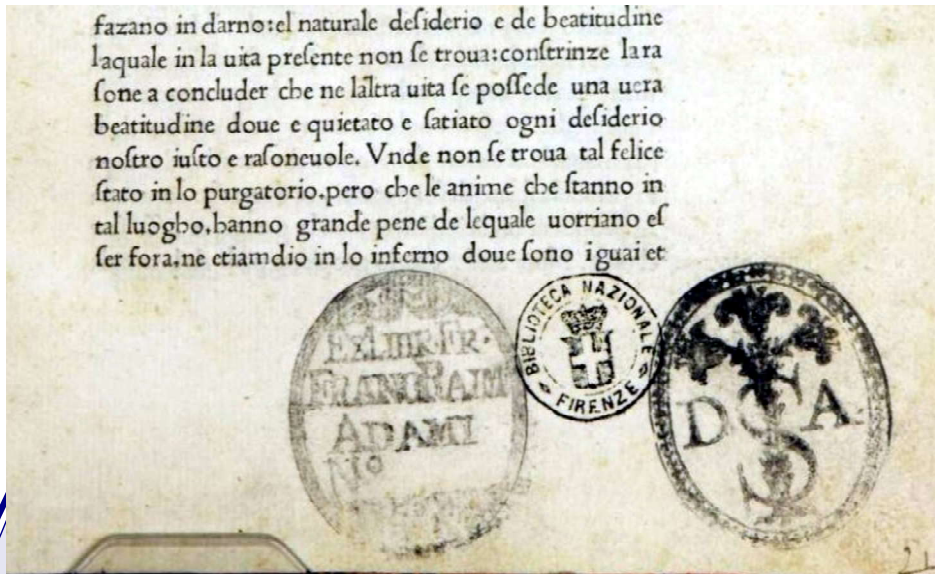 fazano in darno:el naturale deſiderio e de beatitudine
laquale in la uita preſente non ſe troua:conſtrinze lara
ſone a concluder che ne laltra uita ſe poſſede una uera
beatitudine doue e quietato e ſatiato ogni deſiderio
noſtro iuſto e raſoneuole. Vnde non ſe troua tal felice
ſtato in lo purgatorio.pero che le anime che ſtanno in
tal luogho.hanno grande pene de lequale uorriano eſ
ſer fora.ne etiamdio in lo inferno doue ſono i guai et
EX LIBR. FR.
FRANC RAIM
ADAMI
N°
BIBLIOTECA NAZIONALE
FIRENZE
D A